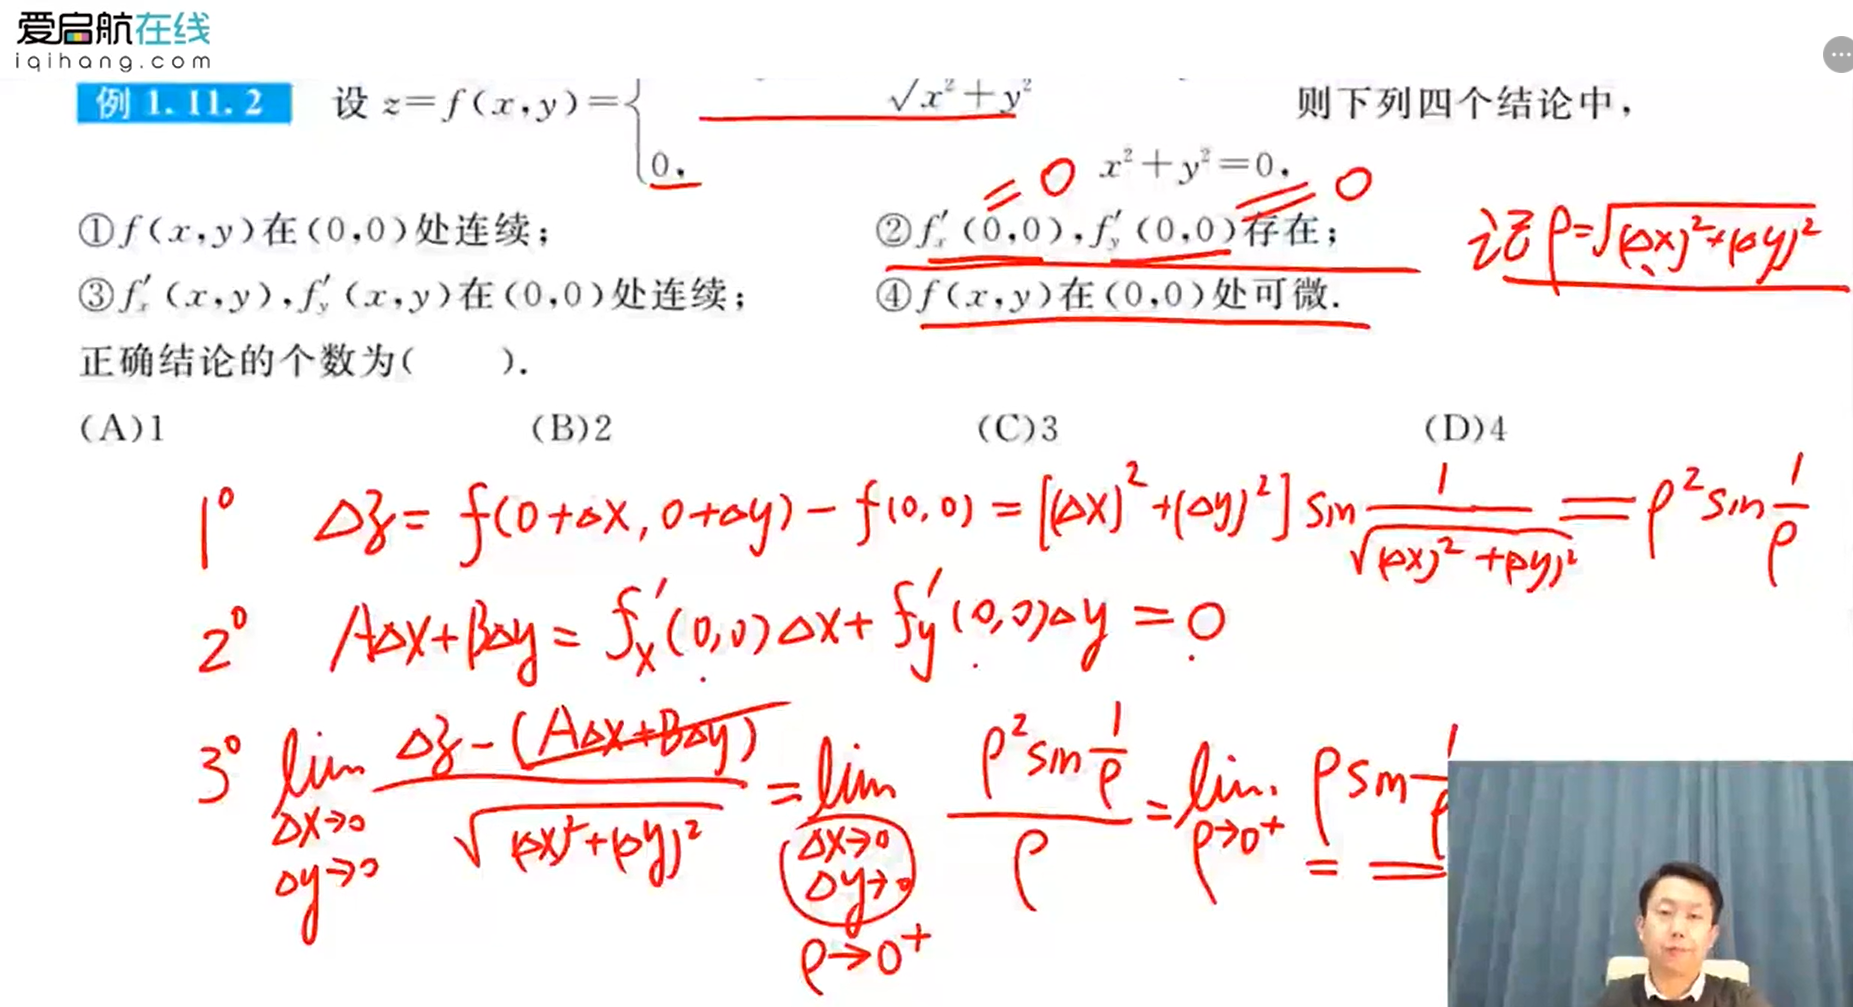 爱启航在线
iqihang.com
例 1.11.2 设 z=f(x,y)={ √x²+y² 则下列四个结论中,
0, x²+y²=0,
=0 =0
①f(x,y)在(0,0)处连续; ②f′ₓ(0,0),f′ᵧ(0,0)存在;
记 ρ=√(Δx)²+(Δy)²
③f′ₓ(x,y),f′ᵧ(x,y)在(0,0)处连续; ④f(x,y)在(0,0)处可微.
正确结论的个数为( ).
(A)1 (B)2 (C)3 (D)4
1° Δz= f(0+Δx, 0+Δy) − f(0,0) = [(Δx)²+(Δy)²] sin 1/√(Δx)²+(Δy)² = ρ² sin 1/ρ
2° AΔx+BΔy = f′ₓ(0,0)Δx+ f′ᵧ(0,0)Δy = 0
3° lim Δx→0 Δy→0 Δz−(AΔx+BΔy)/√(Δx)²+(Δy)² = lim Δx→0 Δy→0 ρ² sin 1/ρ / ρ = lim ρ→0⁺ ρ sin 1/ρ
ρ→0⁺
= =